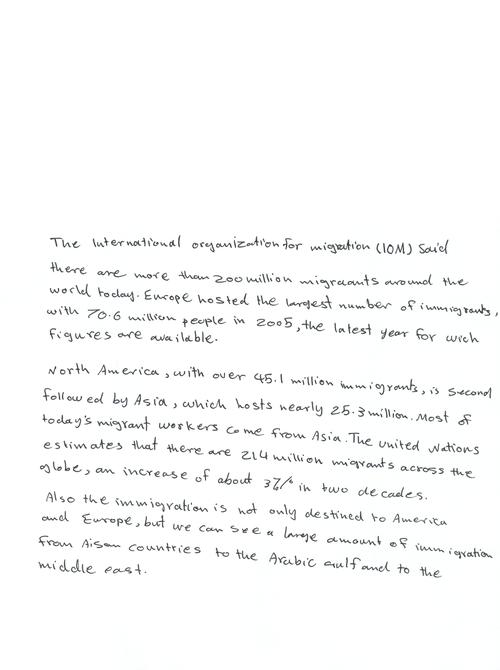 The International organization for migration (IOM) said
there are more than 200 million migraants around the
world today. Europe hosted the largest number of immigrants,
with 70.6 million people in 2005, the latest year for wich
figures are available.
North America, with over 45.1 million immigrants, is second
followed by Asia, which hosts nearly 25.3 million. Most of
today's migrant workers come from Asia. The united Nations
estimates that there are 214 million migrants across the
globe, an increase of about 37% in two decades.
Also the immigration is not only destined to America
and Europe, but we can see a large amount of immigration
from Aisan countries to the Arabic gulf and to the
middle east.